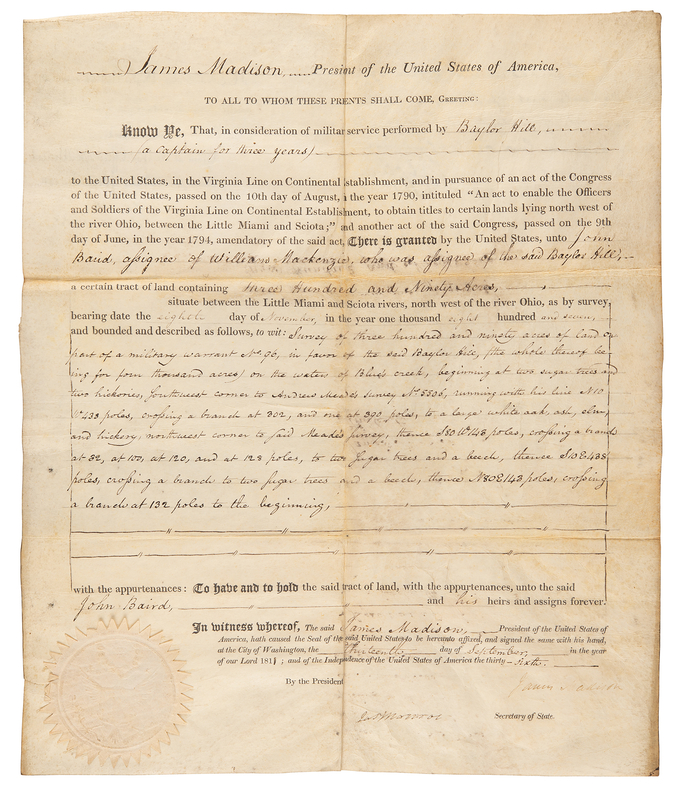 James Madison, Presient of the United States of America,
TO ALL TO WHOM THESE PRENTS SHALL COME, GREETING:
Know Ye, That, in consideration of militar service performed by Baylor Hill,
(a captain for three years)
to the United States, in the Virginia Line on Continental Establishment, and in pursuance of an act of the Congress
of the United States, passed on the 10th day of August, in the year 1790, intituled "An act to enable the Officers
and Soldiers of the Virginia Line on Continental Establishment, to obtain titles to certain lands lying north west of
the river Ohio, between the Little Miami and Sciota;" and another act of the said Congress, passed on the 9th
day of June, in the year 1794, amendatory of the said act, There is granted by the United States, unto John
Baird, assignee of William Mackenzie, who was assignee of the said Baylor Hill,
a certain tract of land containing three Hundred and Ninety Acres,
situate between the Little Miami and Sciota rivers, north west of the river Ohio, as by survey,
bearing date the eighth day of November, in the year one thousand eight hundred and seven,
and bounded and described as follows, to wit: Survey of three hundred and ninety acres of land on
part of a military warrant No. 96, in favor of the said Baylor Hill, (the whole thereof be-
ing for four thousand acres) on the waters of Blue's creek, beginning at two sugar trees and
two hickories, southwest corner to Andrew Meade's survey No. 5506, running with his line N10
W433 poles, crossing a branch at 302, and one at 390 poles, to a large white oak, ash, elm,
and hickory, northwest corner to said Meade's survey, thence S80W143 poles, crossing a branch
at 82, at 100, at 120, and at 128 poles, to two sugar trees and a beech, thence S10E433
poles, crossing a branch to two sugar trees and a beech, thence N80E143 poles, crossing
a branch at 132 poles to the beginning,
with the appurtenances: To have and to hold the said tract of land, with the appurtenances, unto the said
John Baird, and his heirs and assigns forever.
In witness whereof, The said James Madison, President of the United States of
America, hath caused the Seal of the said United States to be hereunto affixed, and signed the same with his hand,
at the City of Washington, the Thirteenth day of September, in the year
of our Lord 1811; and of the Independence of the United States of America the thirty-sixth.
By the President
James Madison
Jas Monroe Secretary of State.